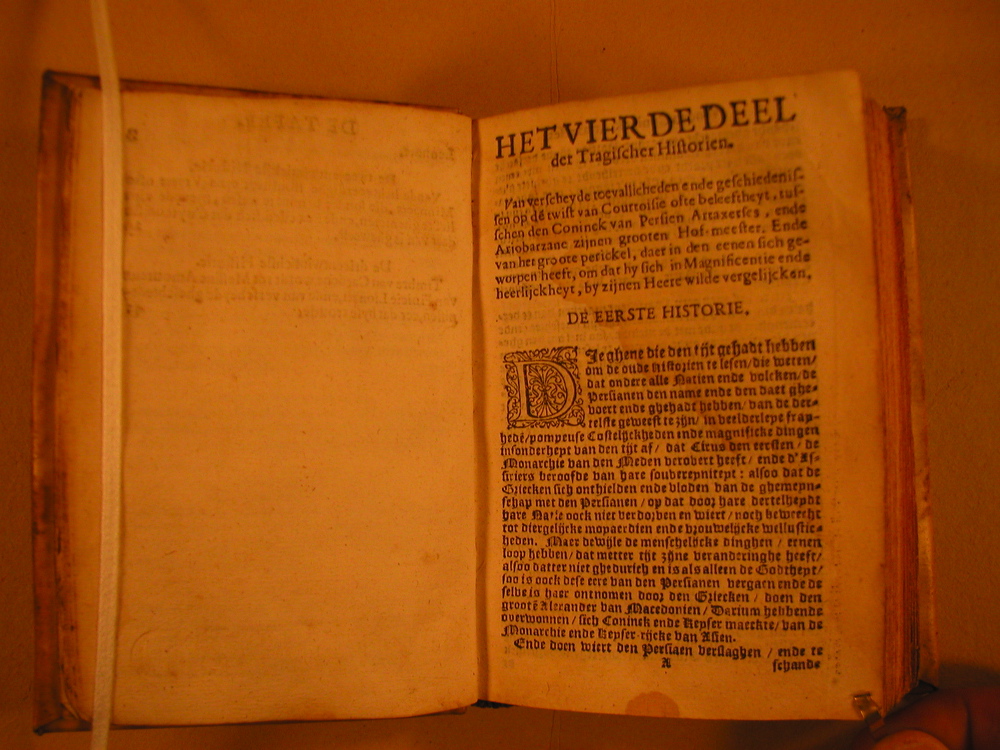 HET VIERDE DEEL
der Tragischer Historien.
Van verscheyde toevallicheden ende geschiedenis-
sen op dē twist van Courtoisie ofte beleeftheyt, tus-
schen den Coninck van Persien Artaxerses, ende
Ariobarzane zijnen grooten Hof-meester. Ende
van het groote perickel, daer in den eenen sich ge-
worpen heeft, om dat hy sich in Magnificentie ende
heerlijckheyt, by zijnen Heere wilde vergelijcken.
DE EERSTE HISTORIE.
DIe ghene die den tijt gehadt hebben
om de oude Historien te lesen/ die weten/
dat ondere alle Natien ende volcken/ de
Persianen den name ende den daet ghe-
voert ende ghehadt hebben/ van de der-
telste geweest te zijn/ in veelderleye frap-
hedē/ pompeuse Costelijckheden ende magnificke dingen
insonderheyt van den tijt af/ dat Cirus den eersten/ de
Monarchie van den Meden verobert heeft/ ende d'As-
siriers beroofde van hare souvereyniteyt: alsoo dat de
Griecken sich onthielden ende vloden van de ghemeyn-
schap met den Persianen/ op dat door hare dertelheydt
hare Natie oock niet verdorven en wiert/ noch beweecht
tot diergelijcke mopaerdien ende vrouwelijcke wellustic-
heden. Maer dewijle de menschelijcke dinghen/ eenen
loop hebben/ dat metter tijt zijne veranderinghe heeft/
alsoo datter niet ghedurich en is als alleen de Godtheyt/
soo is oock dese eere van den Persianen vergaen ende de
selve is haer ontnomen door den Griecken/ doen den
grootē Alexander van Macedonien/ Darium hebbende
overwonnen/ sich Coninck ende Keyser maeckte/ van de
Monarchie ende Keyser-rijcke van Asien.
Ende doen wiert den Persiaen verslaghen/ ende te
A schande